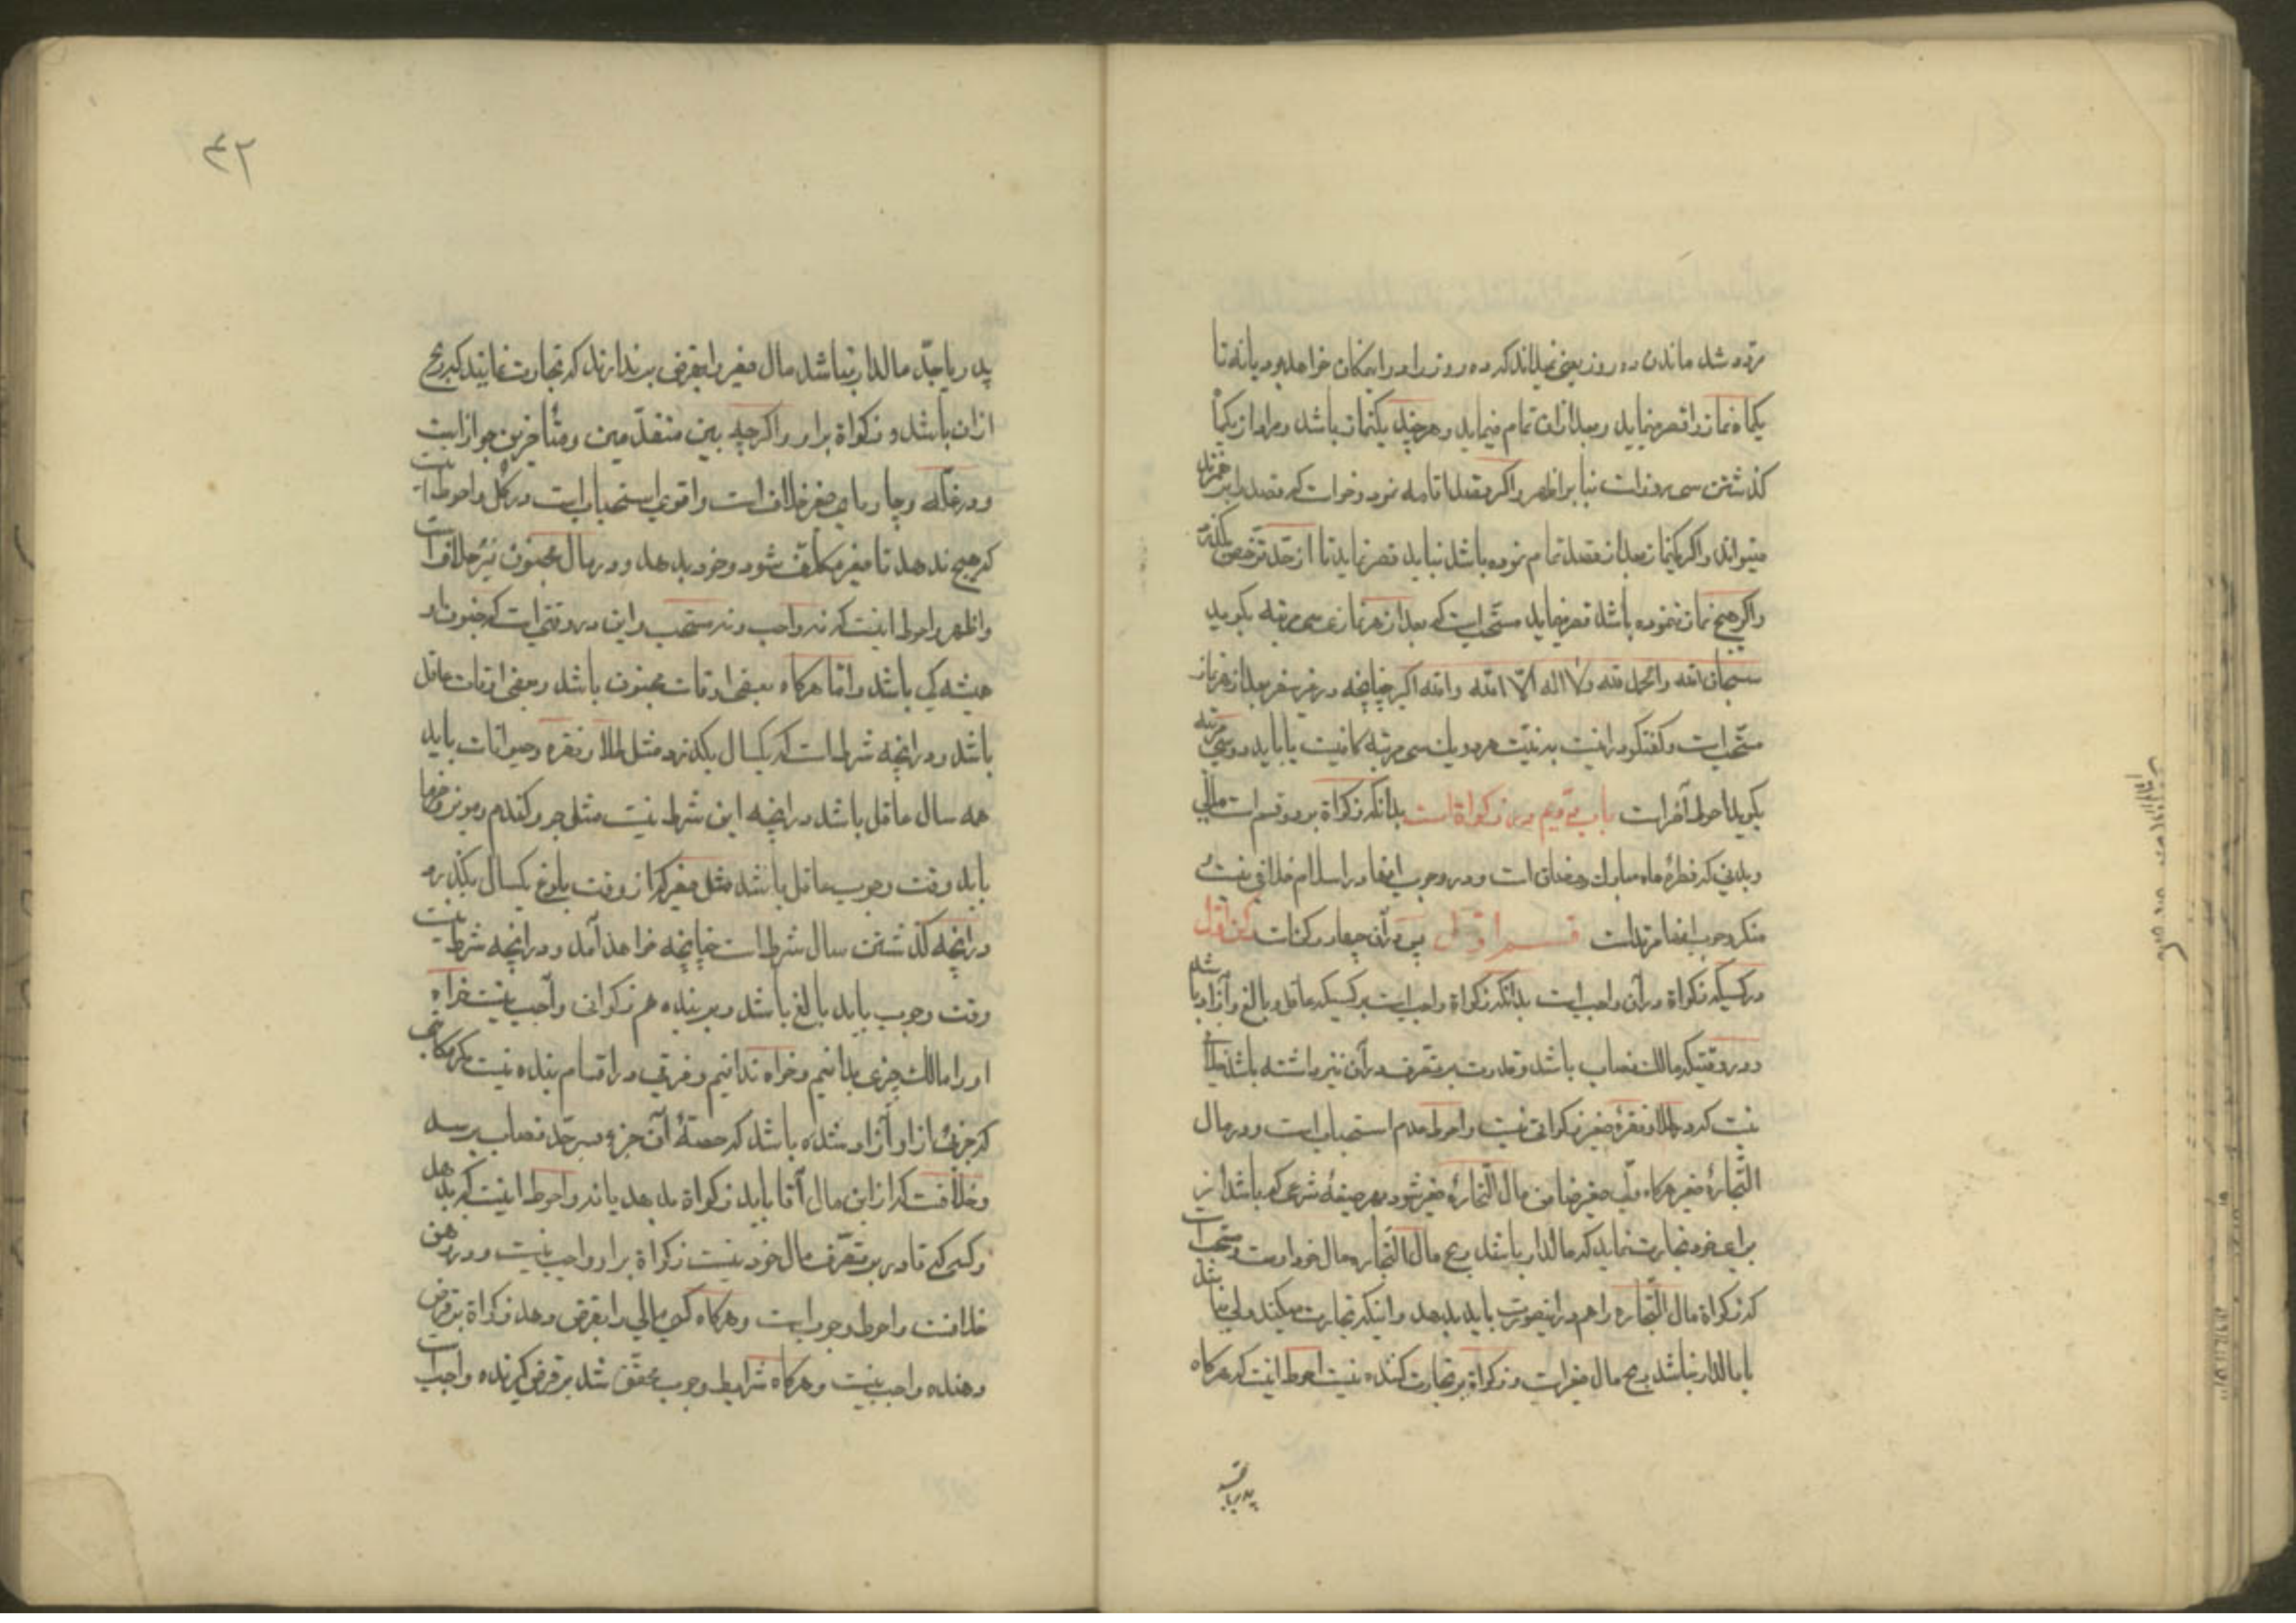 مردد شد ماندن ده روز یعنی نمیداند که ده روز را در این مکان خواهد بود یا نه تا
یکماه نماز را قصر مینماید و بعد از آن تمام مینماید و هر چند یکنماز باشد و مراد از یکماه
کذشتن سی روز است بنا بر اظهر و اکر قصد اقامه نمود و خواست که قصد را بر هم زند
میتواند و اکر یکنماز بعد از قصد تمام نموده باشد نباید قصر نماید تا از حد ترخص بگذرد
و اکر هیچ نماز ننموده باشد قصر مینماید مستحب است که بعد از هر نمازی سی مرتبه بکوید
سبحان الله والحمد لله ولا اله الا الله والله اکبر چنانچه در غیر سفر بعد از هر نماز
مستحب است و گفتگو در اینست به نیت هر دو یک سی مرتبه کافیست یا باید دو سی مرتبه
بکوید احوط آخر است باب دویم در زکواة است بدانکه زکواة بر دو قسم است مالی
و بدنی که فطرهٔ ماه مبارک رمضان است و در وجوب اینها در اسلام خلافی نیست
منکر وجوب اینها مرتد است قسم اول پس در آن چهار رکن است رکن اول
در کسیکه زکواة در آن واجب است بدانکه زکواة واجب است بر کسیکه عاقل و بالغ و آزاد باشد
و در وقتیکه مالک نصاب باشد و قدرت بر تصرف در آن نیز داشته باشد خلافی
نیست که در طلا و نقرهٔ صغیر زکواتی نیست و احوط عدم استحباب است و در مال
التجارهٔ صغیر هرکاه ولی صغیر ضامن مال التجارهٔ صغیر شود بهر صیغهٔ شرعی که باشد از
برای خود تجارت نماید که مالدار باشد ربح مال التجاره مال خود اوست و مستحب است
که زکواة مال التجاره را هم در اینصورت باید بدهد و اینکه تجارت میکند ولی نباشد
یا مالدار نباشد ربح مال صغیر است و زکواة بر تجارت کننده نیست احوط اینست که هرکاه
پدر یا جد
۴۲
پدر یا جد مالدار نباشد مال صغیر را بقرض برندارند که تجارت نمایند که ربح
از آن باشد و زکواة بر او و اکرچه بین متقدمین و متأخرین جواز است
و در غله و چارپای صغیر خلاف است و اقوی استحباب است در کل و احوط اینست
که هیچ ندهد تا صغیر مکلف شود و خود بدهد و در مال مجنون نیز خلاف است
و اظهر و احوط اینست که نه واجب و نه مستحب و این در وقتی است که جنون او
همیشه کی باشد و اما هرکاه بعضی اوقات مجنون باشد و بعضی اوقات عاقل
باشد و در آنچه شرط است که یکسال بکذرد مثل طلا و نقره و حیوانات باید
همه سال عاقل باشد در آنچه این شرط نیست مثل جو و کندم و مویز و خرما
باید وقت وجوب عاقل باشد مثل صغیر که از وقت بلوغ یکسال بکذرد
در آنچه کذشتن سال شرط است چنانچه خواهد آمد و در آنچه شرط نیست
وقت وجوب باید بالغ باشد و بر بنده هم زکواتی واجب نیست خواه
او را مالک چیزی بدانیم و خواه ندانیم و فرقی در اقسام بنده نیست مکر مکاتبی
که جزئی از او آزاد شده باشد که حصهٔ آن جزء بسر حد نصاب برسد
و خلافست که از این مال آقا باید زکواة بدهد یا نه و احوط اینست که بدهد
و کسی که قادر بر تصرف مال خود نیست زکواة بر او واجب نیست و در رهن
خلافست و احوط وجوب است و هرکاه کسی مالی را بقرض دهد زکواة بر قرض
دهنده واجب نیست و هرکاه شرایط وجوب محقق شد بر قرض کیرنده واجب است